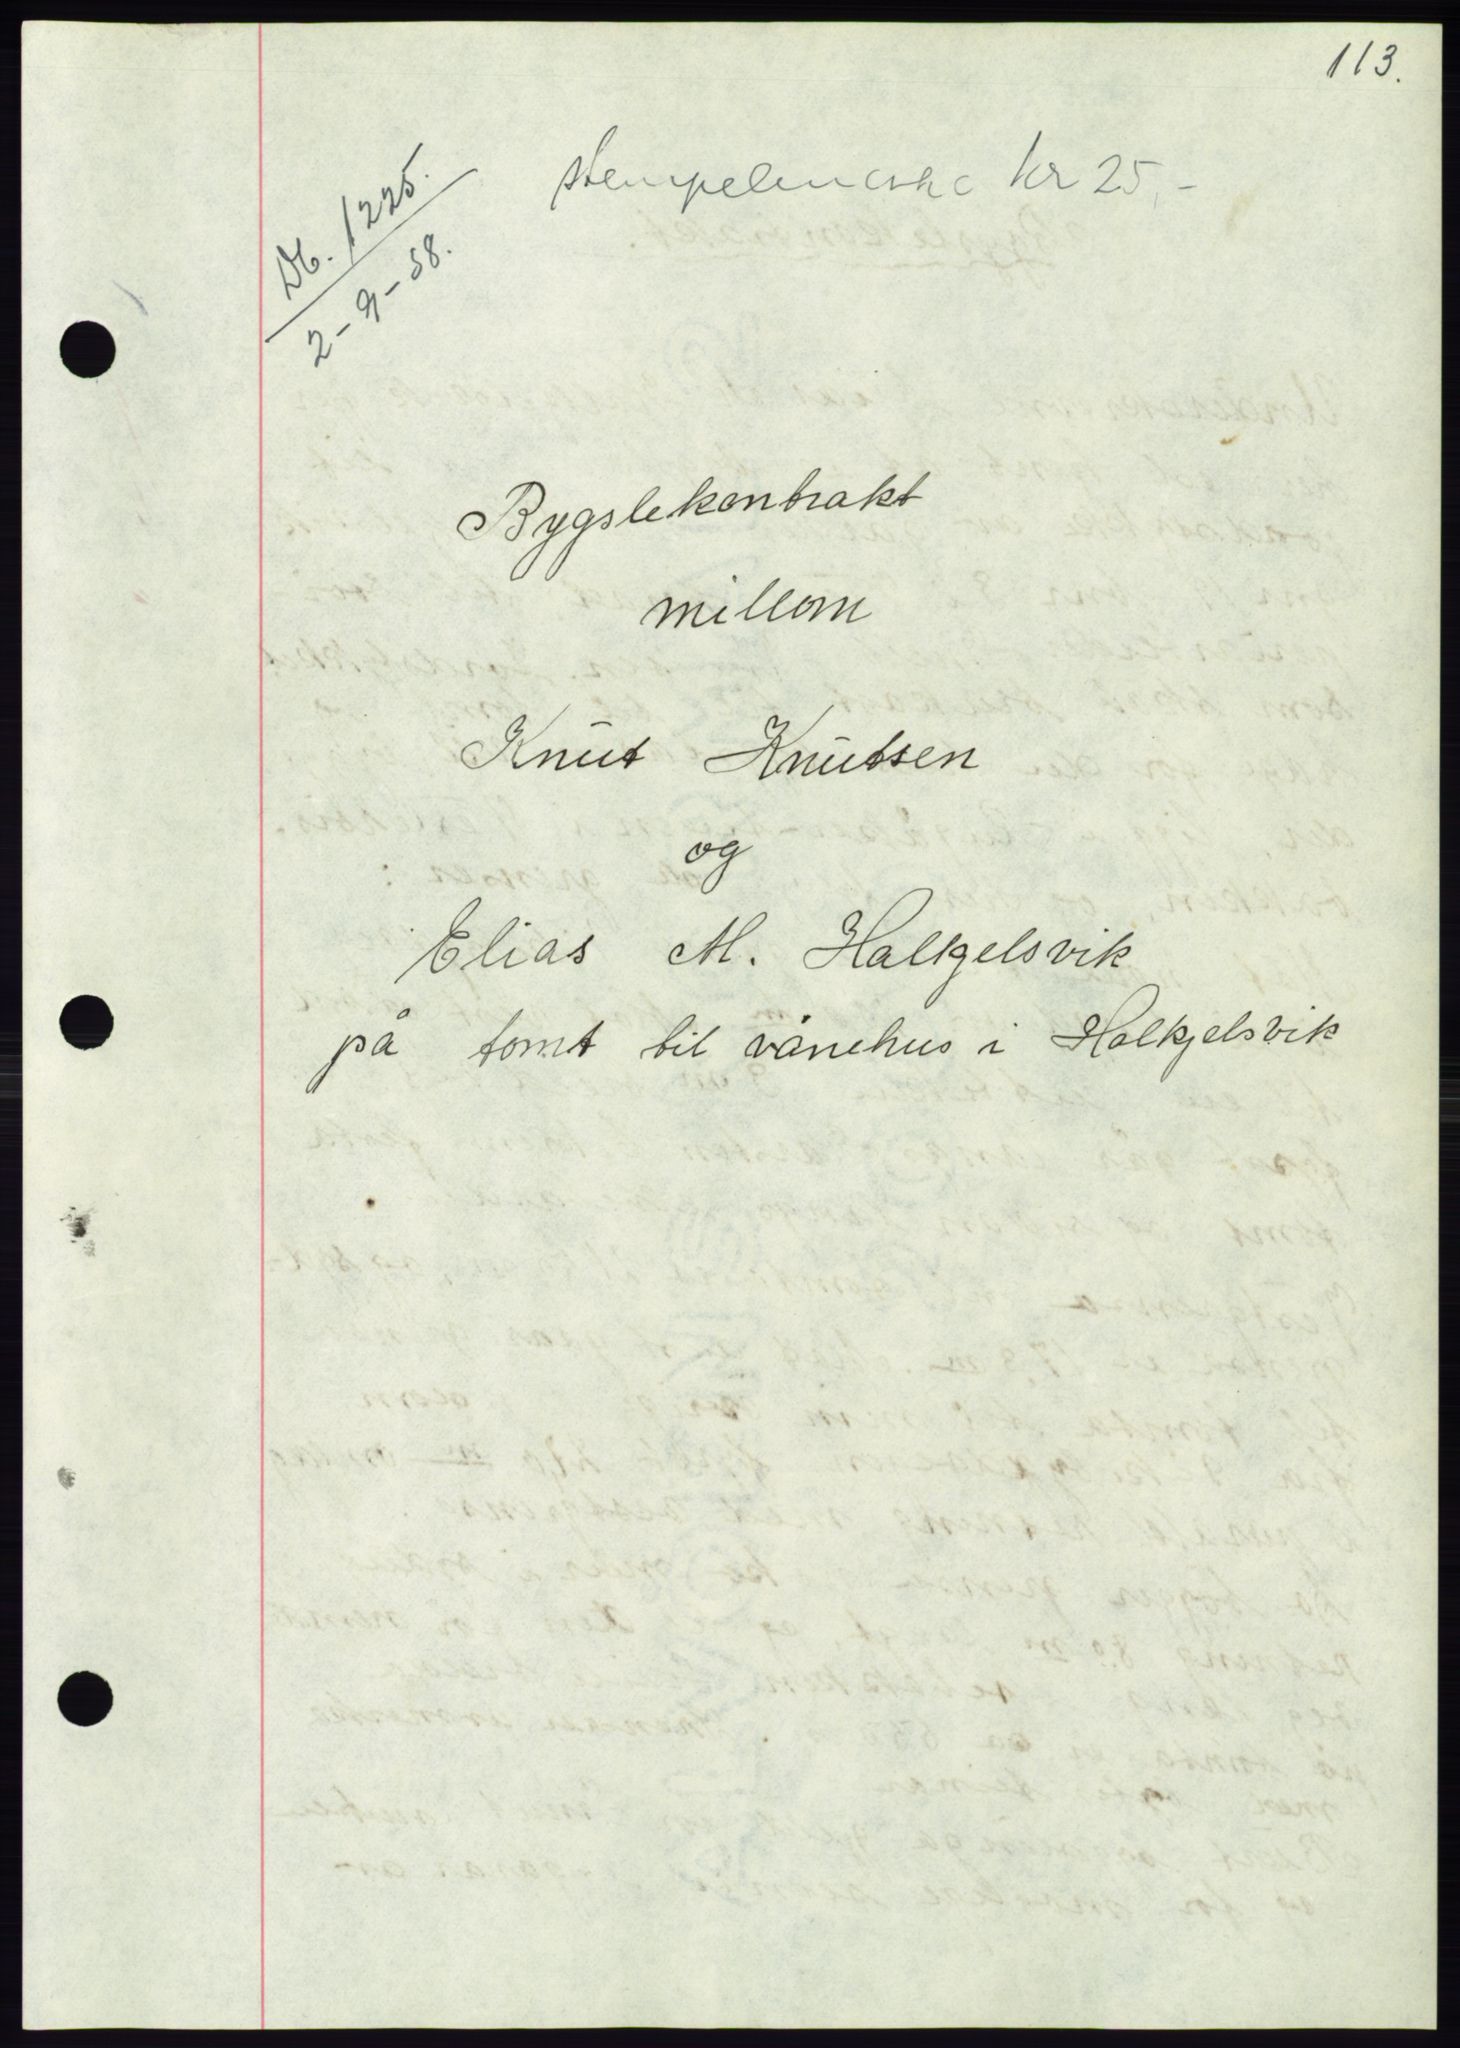 113.
Stempelmerke kr 25,-
Db. 1225.
2-9-58.
Bygslekontrakt
millom
Knut Knutsen
og
Elias M. Halkjelsvik
på tomt til vånehus i Halkjelsvik